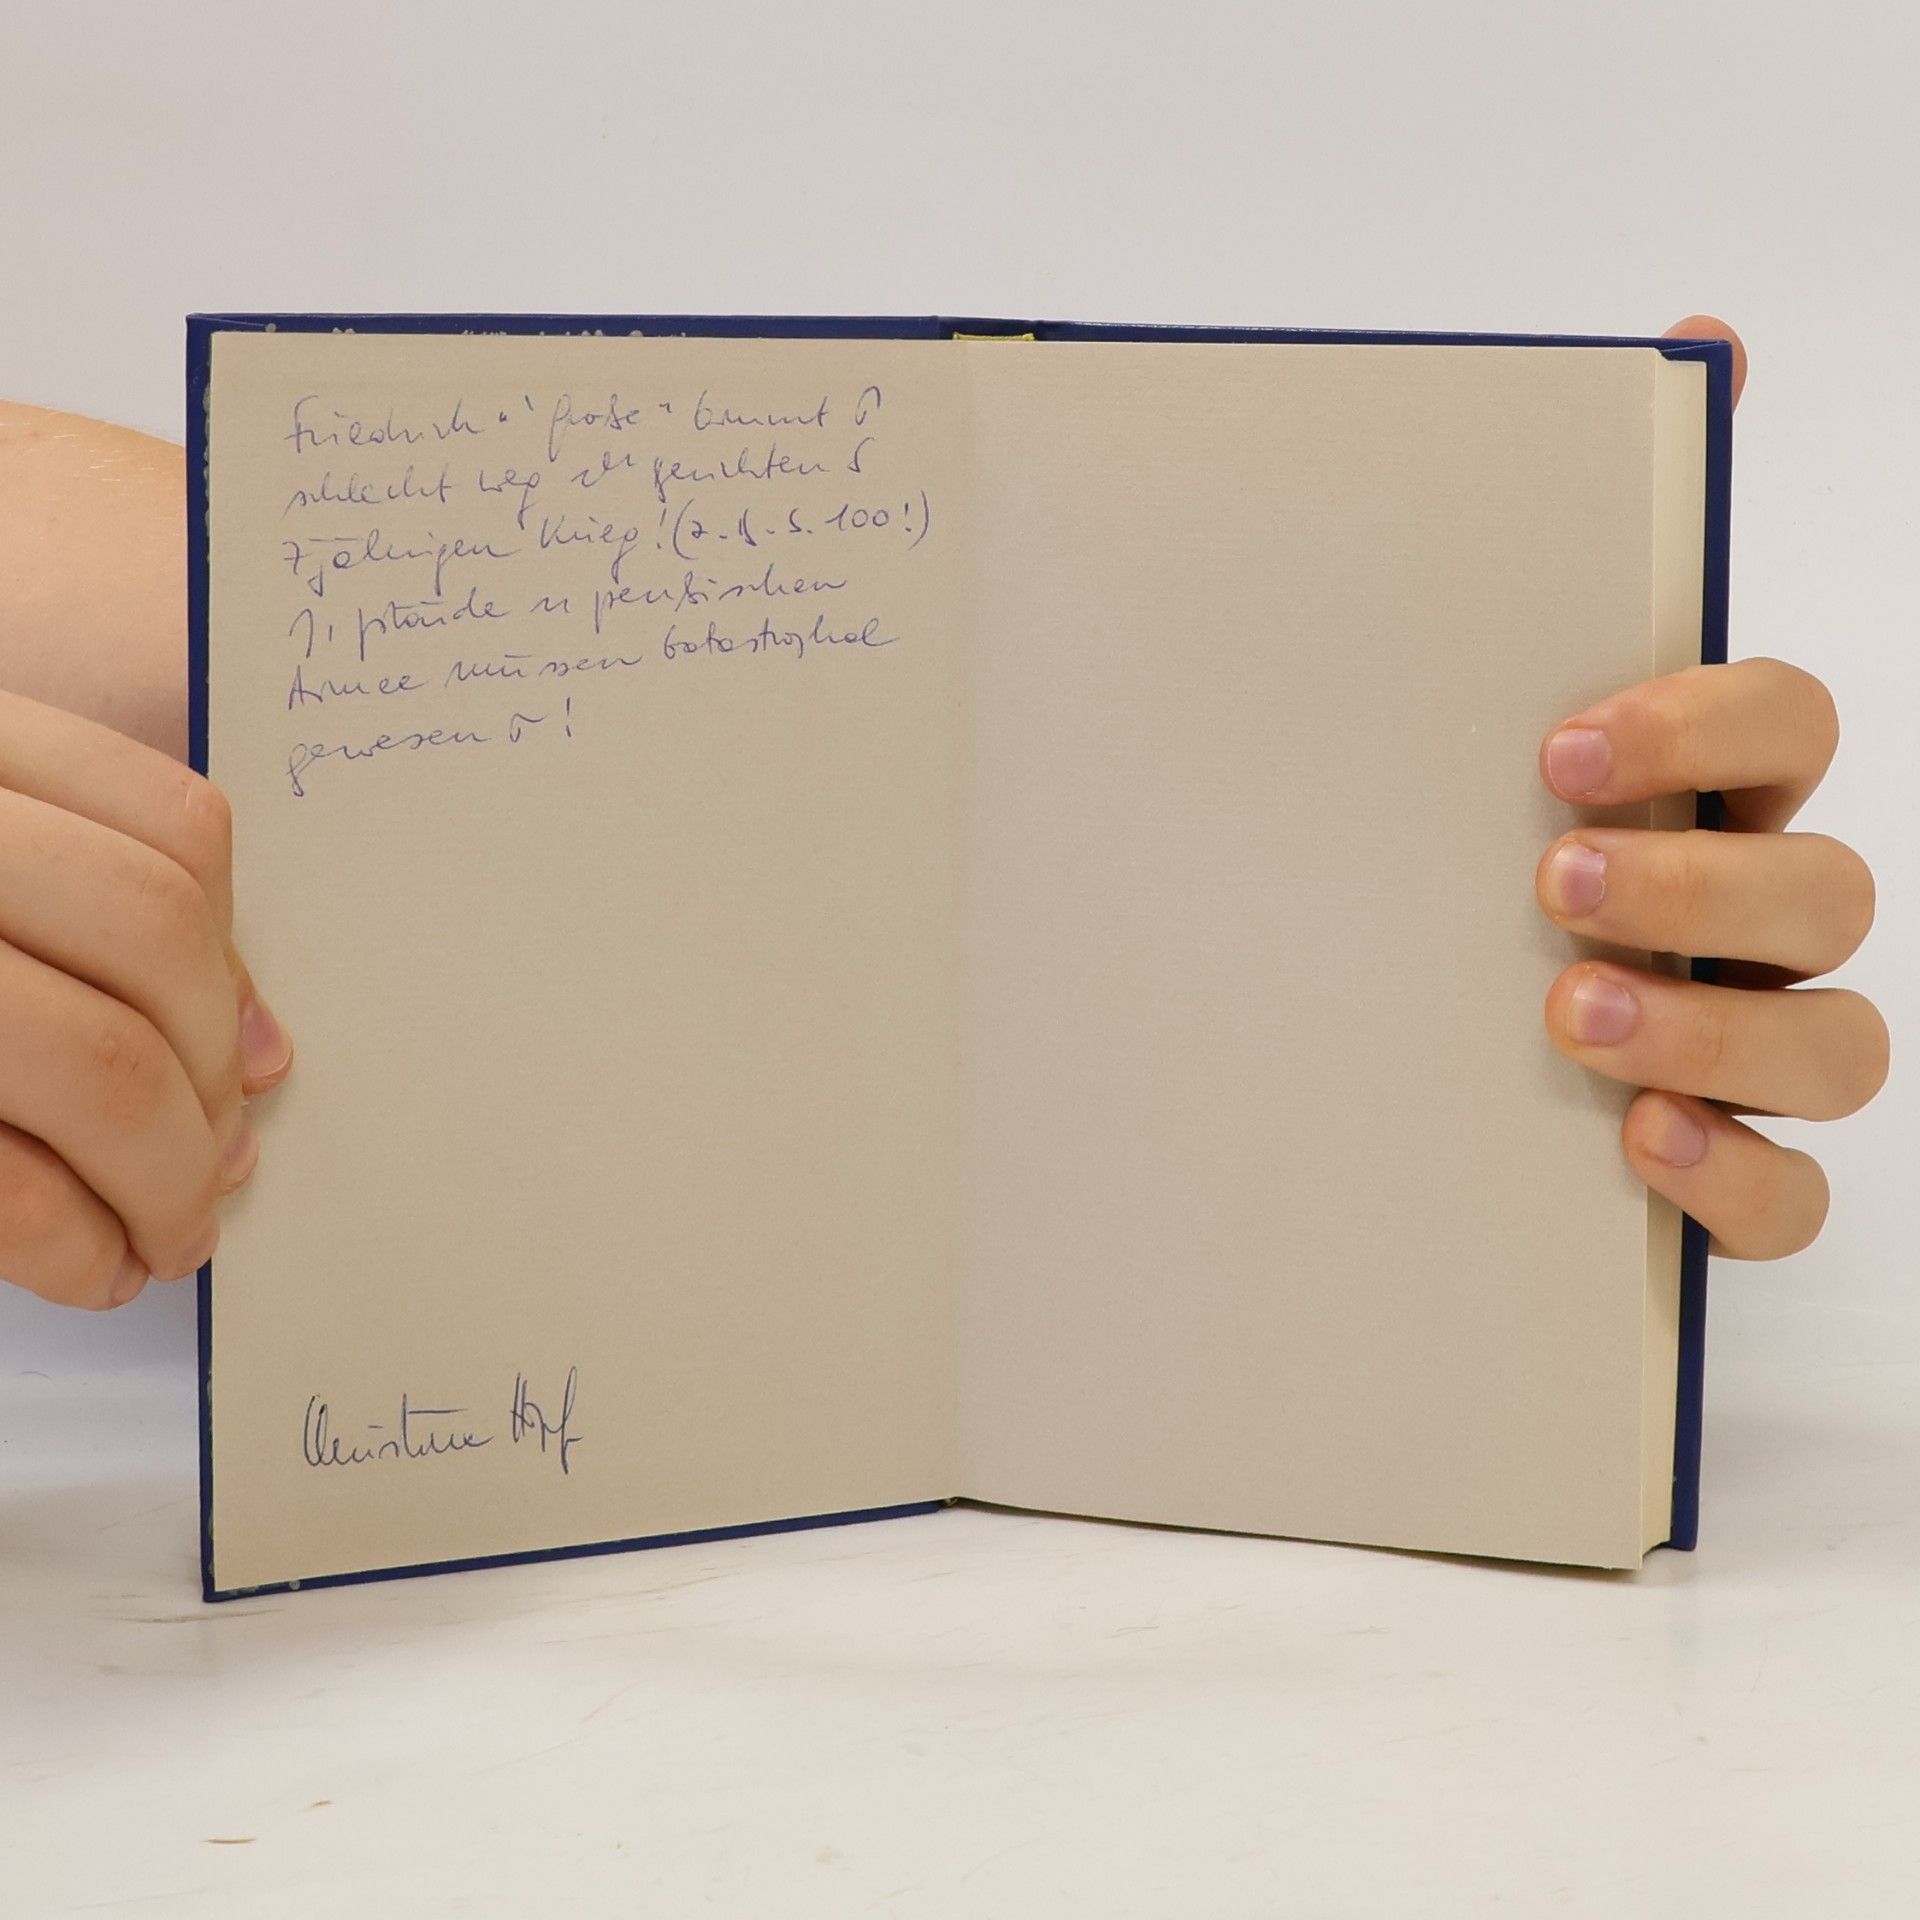 Friedrich "' Große" kommt
schlecht weg gerichten
7jährigen Krieg! (z. B. S. 100!)
preußischen
Armee müssen katastrophal
gewesen !
Christine Hopf